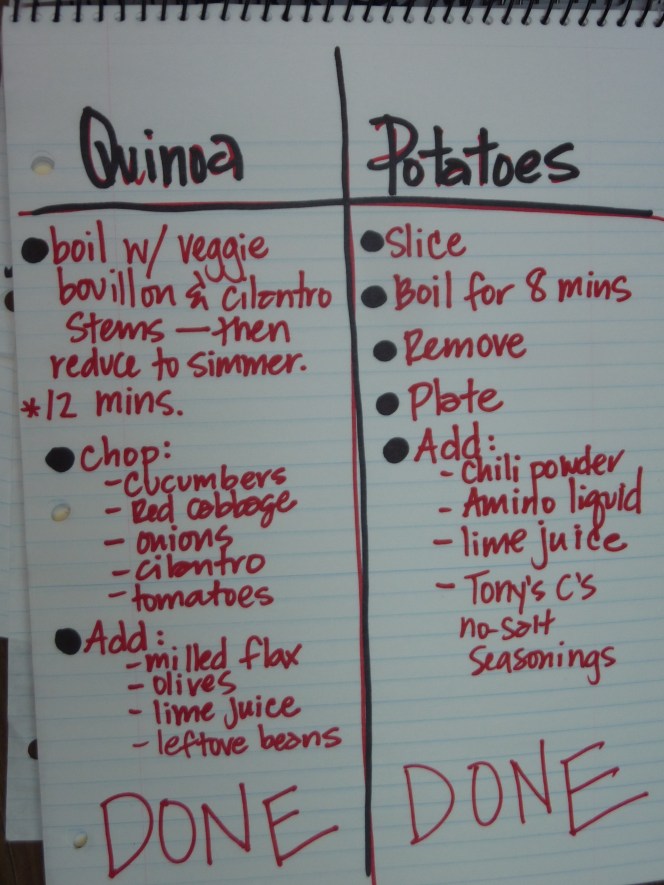 Quinoa
boil w/ veggie
bouillon & cilantro
stems — then
reduce to simmer.
*12 mins.
Chop:
- cucumbers
- Red cabbage
- onions
- cilantro
- tomatoes
Add:
- milled flax
- olives
- lime juice
- leftove beans
DONE
Potatoes
Slice
Boil for 8 mins
Remove
Plate
Add:
- Chili powder
- Amino liquid
- lime juice
- Tony's C's
no-salt
Seasonings
DONE